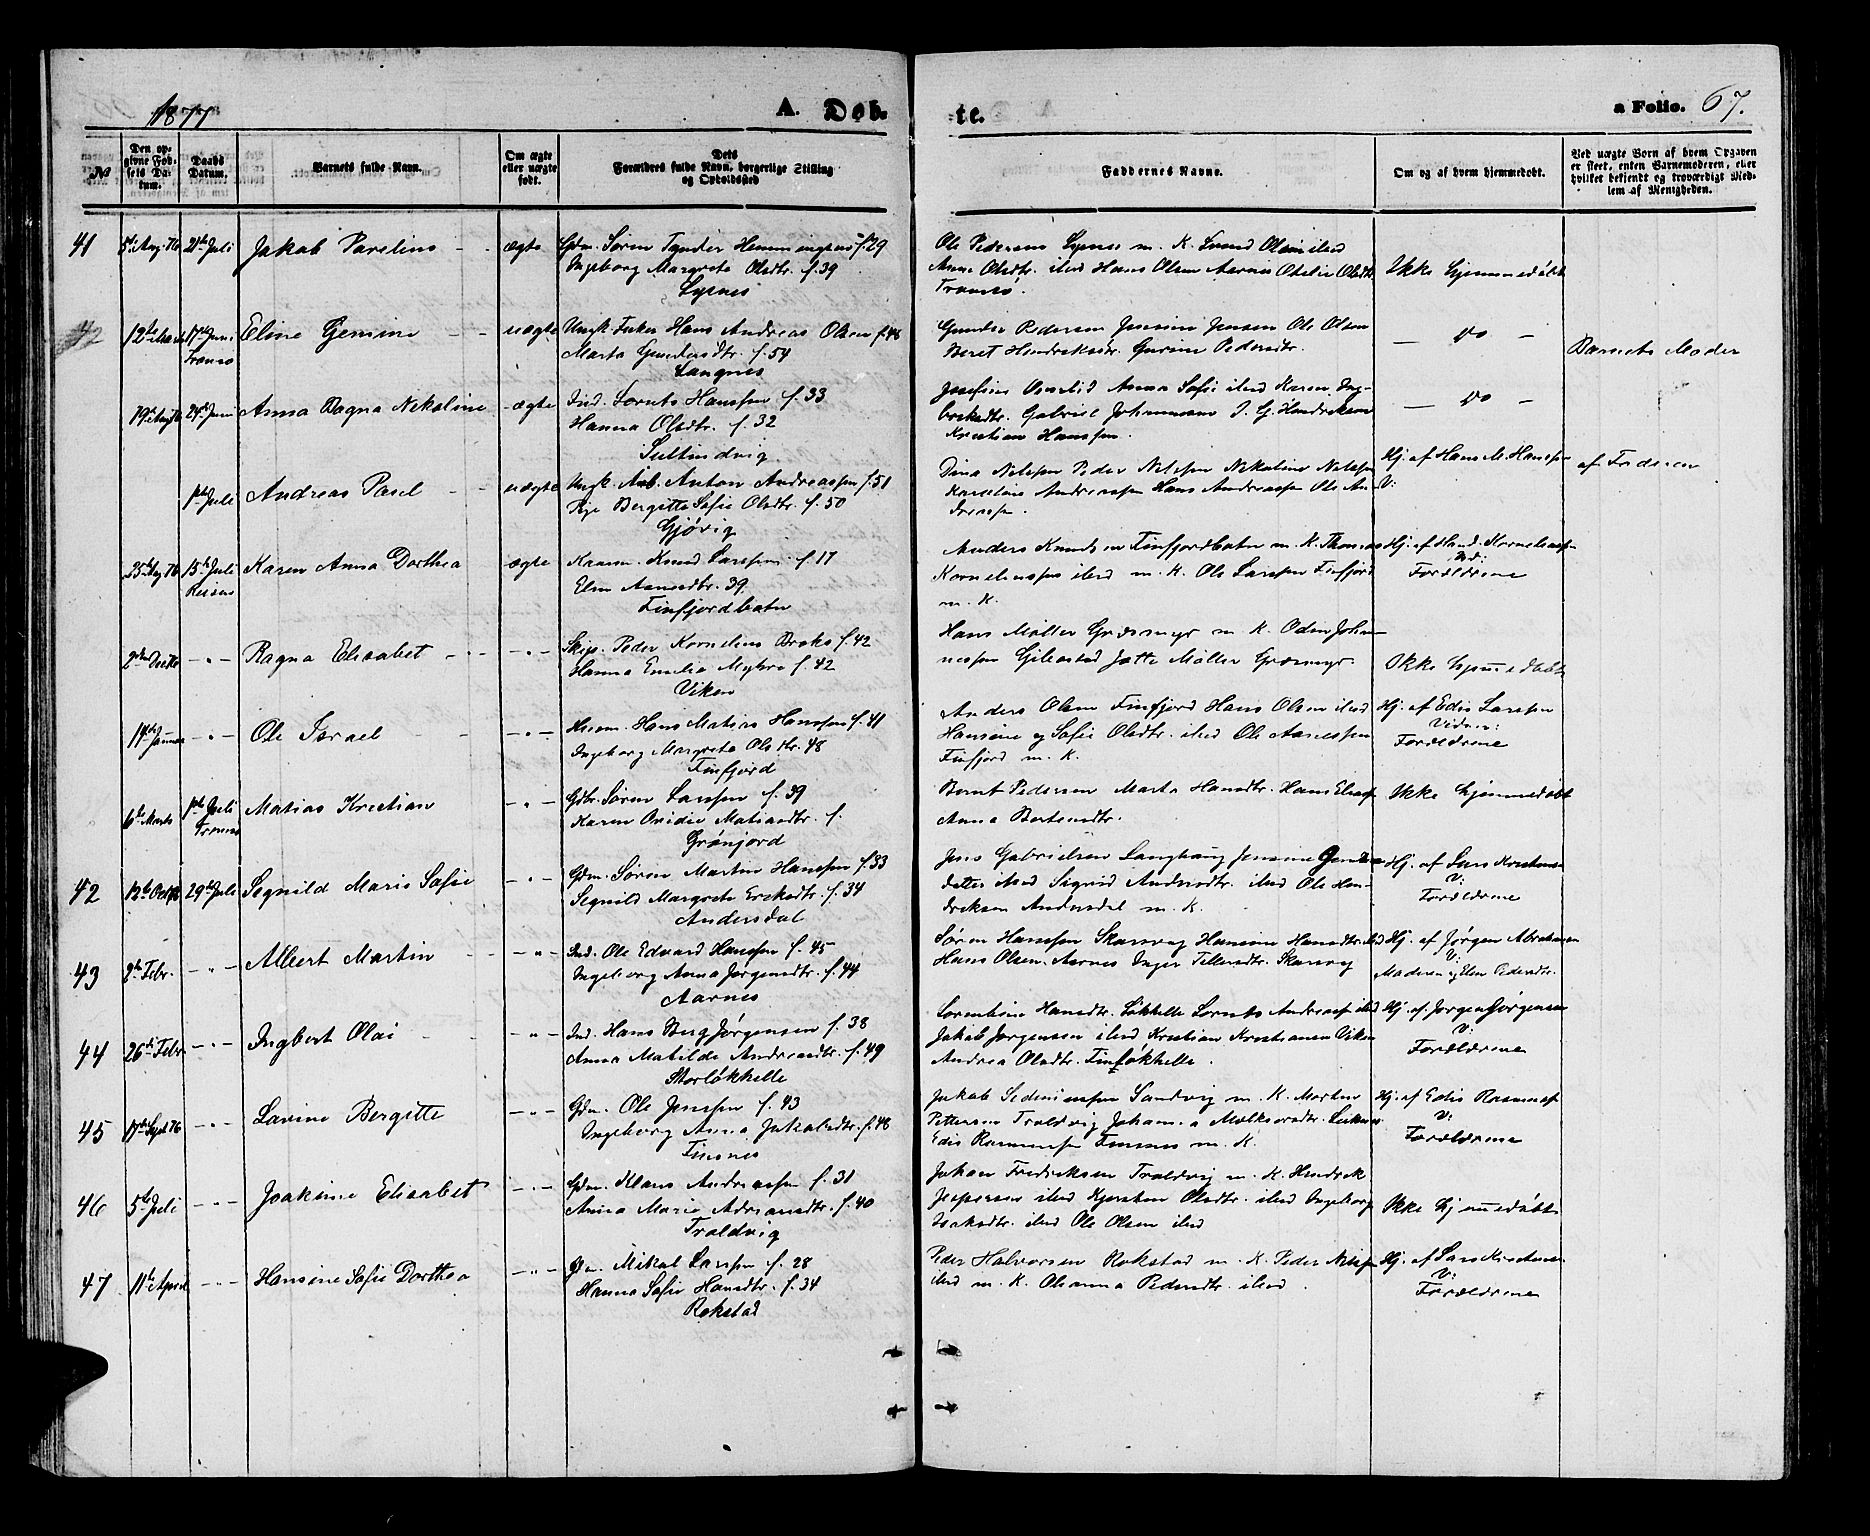 1877
A. Døb-
te.
a Folio. 67.
№
Den op-
givne Fød-
sels Da-
tum.
Daabs
Datum.
Barnets fulde Navn.
Om ægte
eller uægte
født.
Dets
Forældres fulde Navn, borgerlige Stilling
og Opholdssted
Faddernes Navne.
Om og af hvem hjemmedøbt.
Ved uægte Børn af hvem Opgaven
er skeet, enten Barnemoderen, eller
hvilket bekjendt og troværdigt Med-
lem af Menigheden.
41 5te Aug 76 21de Juli Jakob Parelius - - ægte Gdm. Søren Tynder Hemmingsen f. 29
Ingeborg Margrete Olsdtr. f. 39
Lysnes
Ole Pedersen Lysnes m. K. Svend Olsen ibid
Anne Olsdtr. ibid Hans Olsen Aarnes Otelie Olsdtr
Tromsø.
Ikke hjemmedøbt
42 12te Marts 17de Juni Eline Gemine - - uægte Ungk. Hans Andreas Olsen f. 48
Tromsø
Marta Gundersdtr. f. 54
Langnes
Gunder Pedersen Jensine Jensen Ole Olsen
Beret Hendriksdtr. Gurine Pedersdtr.
— do —
Barnets Moder
19de Aug 76 24de Juni Anna Dagna Nikoline ægte Ind. Lornts Hanssen f. 33
Hanna Olsdtr. f. 32
Sultindvig
Josefine Anna Sofie ibid Karen Ing-
brektdtr. Gabriel Johannesen J. G. Hendriksen
Kristian Hanssen.
— do —
1ste Juli Andreas Parel - - uægte Ungk. Arb. Anton Andreassen f. 51
Pige Bergitte Sofie Olsdtr. f. 50
Gjøvig
Dina Nilssen Peder Nilssen Nikoline Nilssen
Karoline Andreassen Hans Andreassen Ole An-
dreassen.
Hj. af Hans M. Hanssen
V:
af Faderen
25de Aug 76 15de Juli Karen Anna Dorthea ægte Knud Larssen f. 17
Elen Arnesdtr. 39
Finfjordbotn
Anders Knudsen Finfjordbotn m. K. Thomas
Korneliussen ibid m. K. Ole Larssen Finfjord
m. K.
Hj. af Hans Korneliussen
Vid:
Forældrene
2den Decbr - " - Ragna Elisabet - " - - " - Skip. Peder Kornelius Broks f. 42
Hanna Emelie Myhre f. 42
Viken
Hans Møller Græsmyr m. K. Odin Johan-
nessen Gibostad Jette Møller Græsmyr.
Ikke hjemmedøbt
14de Januar - " - Ole Israel - - " - Hans Matias Hanssen f. 41
Ingeborg Margrete Olsdtr. 48
Finfjord
Anders Olsen Finfjord Hans Olsen ibid
Hansine og Sofie Olsdtr. ibid Ole Arnessen
Finfjord m. K.
Hj. af Edis Larssen
Vidner:
Forældrene
6te Marts 1ste Juli Matias Kristian - " - Gdbr. Søren Larssen f. 39
Tromsø
Karen Ovidie Matiasdtr. f.
Grønjord
Bernt Pedersen Marta Hansdtr. Hans
Anna Berteusdtr.
Ikke hjemmedøbt
42 12te Octbr 29de Juli Segnild Marie Sofie - " - Gdm. Søren Martin Hanssen f. 33
Segnild Margrete Eriksdtr. f. 34
Andersdal
Jens Gabrielsen Langhaug Jensine
datter ibid Sigrid Andersdtr. ibid Ole Hen-
driksen Andersdal m. K.
Hj. af Lars Kristensen
V:
Forældrene
43 2de Febr. - " - Albert Martin - - - " - Ind. Ole Edvard Hanssen f. 45
Ingeborg Anna Jørgensdtr. f. 44
Aarnes
Søren Hanssen Skarsvog Hansine Hansdtr. ibid
Hans Olsen Aarnes Inger Tellefsdtr. Skarsvog
Hj. af Jørgen Abrahamsen
V:
Moderen og Elen Pedersdtr.
44 26de Febr. - " - Ingbert Olai - - - " - Ind. Hans Berg Jørgensen f. 38
Anna Matilde Andreasdtr. f. 49
Storløkkelle
Lorentine Hansdtr. Løkkelle Lornts Andreassen ibid
Jakob Jørgensen ibid Kristian Kristiansen Viken
Andrea Olsdtr. Finløkkelle.
Hj. af Jørgen Jørgensen
V:
Forældrene
45 17de Septb 76 - " - Lavine Bergitte - " - Gdm. Ole Jenssen f. 43
Ingeborg Anna Jakobsdtr. f. 48
Finsnes
Jakob Sandvig m. K. Morten
Pettersen Troldvig Johanna
Edis Rasmussen Finsnes m. K.
Hj. af Edis Rasmussen
V:
Forældrene
46 5te Juli - " - Joakime Elisabet - " - Gdm. Klaus Andreassen f. 31
Anna Marie Adriansdtr. f. 40
Troldvig
Johan Fredriksen Troldvig m. K. Hendrik
Jespersen ibid Kjersten Olsdtr. ibid Ingeborg
Isaksdtr. ibid Ole Olsen ibid
Ikke hjemmedøbt
47 11te April - " - Hansine Sofie Dorthea - " - Gdm. Mikal Larssen f. 28
Hanna Sofie Hansdtr. f. 34
Rokstad
Peder Halvorsen Rokstad m. K. Peder Nilssen
ibid m. K. Oleanna Pedersdtr. ibid.
Hj. af Lars Kristensen
V:
Forældrene